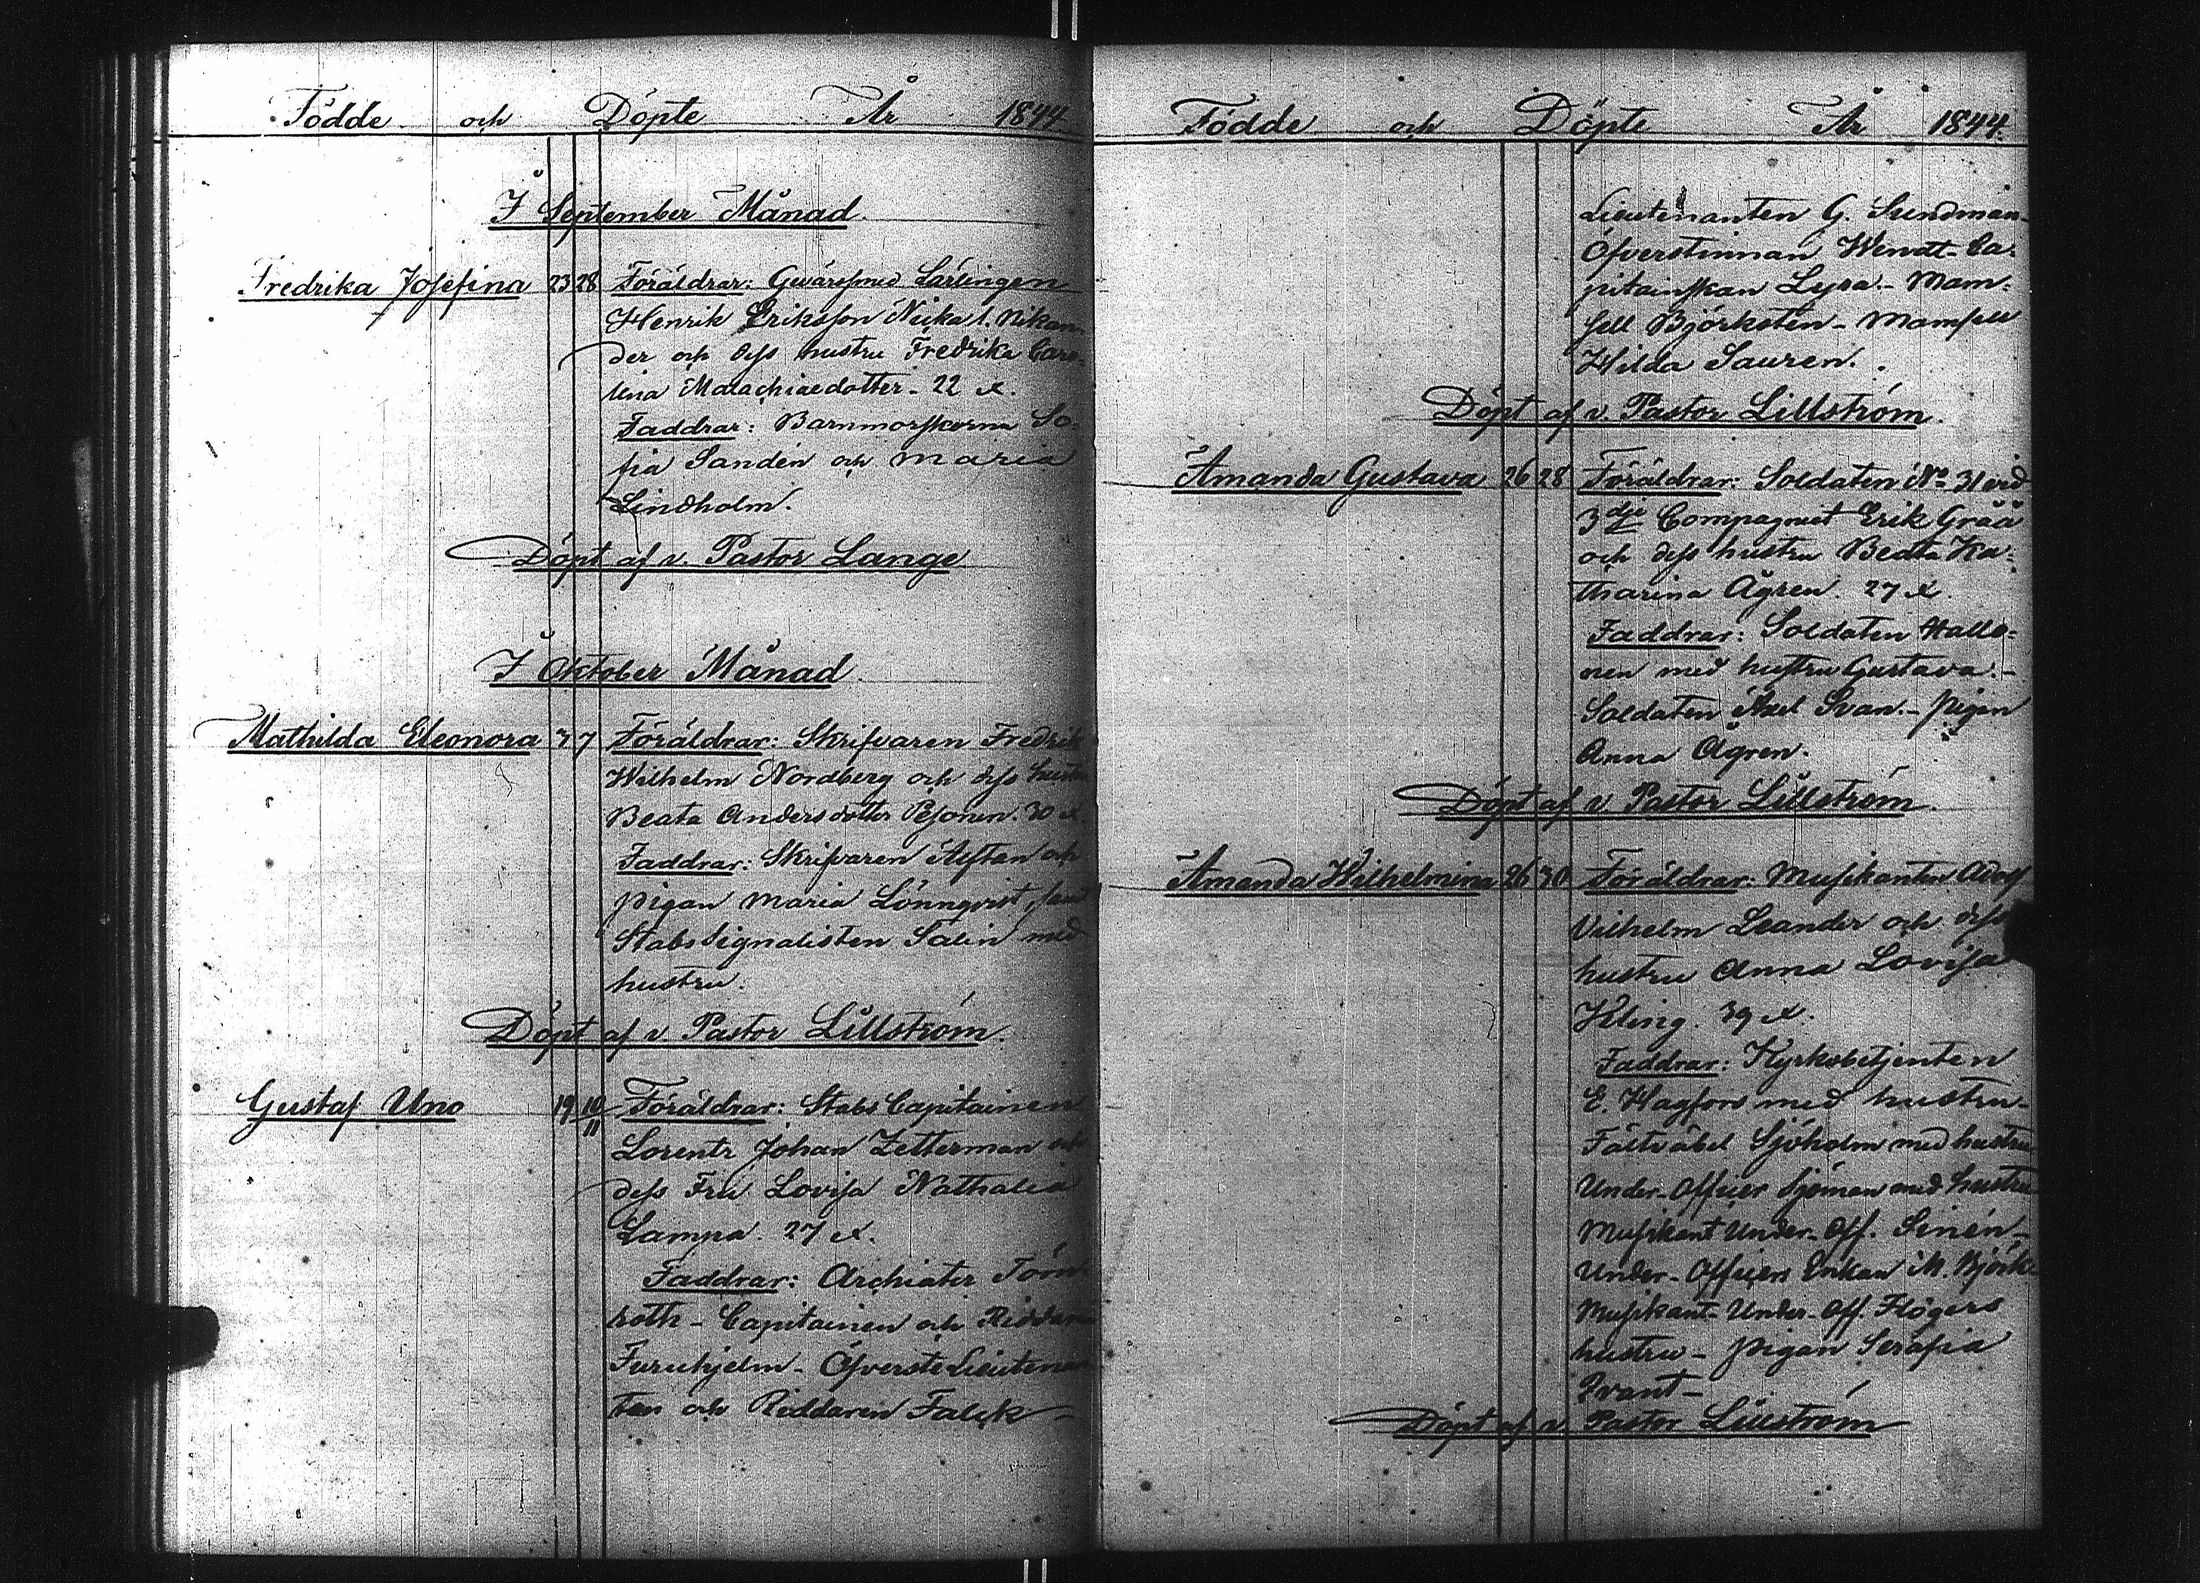 Födde och Döpte År 1844
I September Månad.
Fredrika Josefina 23 28 Föräldrar: Gevärssmed Lärlingen
Henrik Eriksson Nicka l. Nikan-
der och dess hustru Fredrika Caro-
lina Malachiaedotter. 22 x.
Faddrar: Barnmorskorna So-
fia Sandén och Maria
Lindholm.
Döpt af v. Pastor Lange
I Oktober Månad.
Mathilda Eleonora 3 7 Föräldrar: Skrifvaren Fredrik
Wilhelm Nordberg och dess hustru
Beata Andersdotter Pesonen. 30 x.
Faddrar: Skrifvaren och
pigan Maria Lönnqvist, samt
Stabs Signalisten Salin med
hustru.
Döpt af v. Pastor Lillström.
Gustaf Uno 19 10/11 Föräldrar: Stabs Capitainen
Lorentz Johan Zetterman och
dess Fru Lovisa Nathalia
Lampa. 27 x.
Faddrar: Archiater Törn-
roth - Capitainen och Riddaren
Furuhjelm - Öfverste Lieutenan-
ten och Riddaren Falck -
Födde och Döpte År 1844.
Lieutenanten G. Sundman -
Öfverstinnan Wendt - Ca-
pitainskan Lyra. - Mam-
sell Björksten - Mamsell
Hilda Sauren.
Döpt af v. Pastor Lillström.
Amanda Gustava 26 28 Föräldrar: Soldaten No 31 vid
3dje Compagniet Erik Gråå
och dess hustru Beata Ka-
tharina Ågren. 27 x.
Faddrar: Soldaten Hallo-
nen med hustru Gustava. -
Soldaten Axel Svan. - Pigan
Anna Ågren.
Döpt af v. Pastor Lillström.
Amanda Wilhelmina 26 30 Föräldrar: Musikanten Adolf
Vilhelm Leander och dess
hustru Anna Lovisa
Heling. 39 x.
Faddrar: Kyrkobetjenten
E. Hagfors med hustru -
Fältväbel Sjöholm med hustru
Under-Officer Sjöman med hustru
Musikant Under-Off. Sinén -
Under-Officers Enkan M. Björk
Musikant-Under-Off. Högers
hustru - Pigan Serafia
Qvant -
Döpt af v. Pastor Lillström